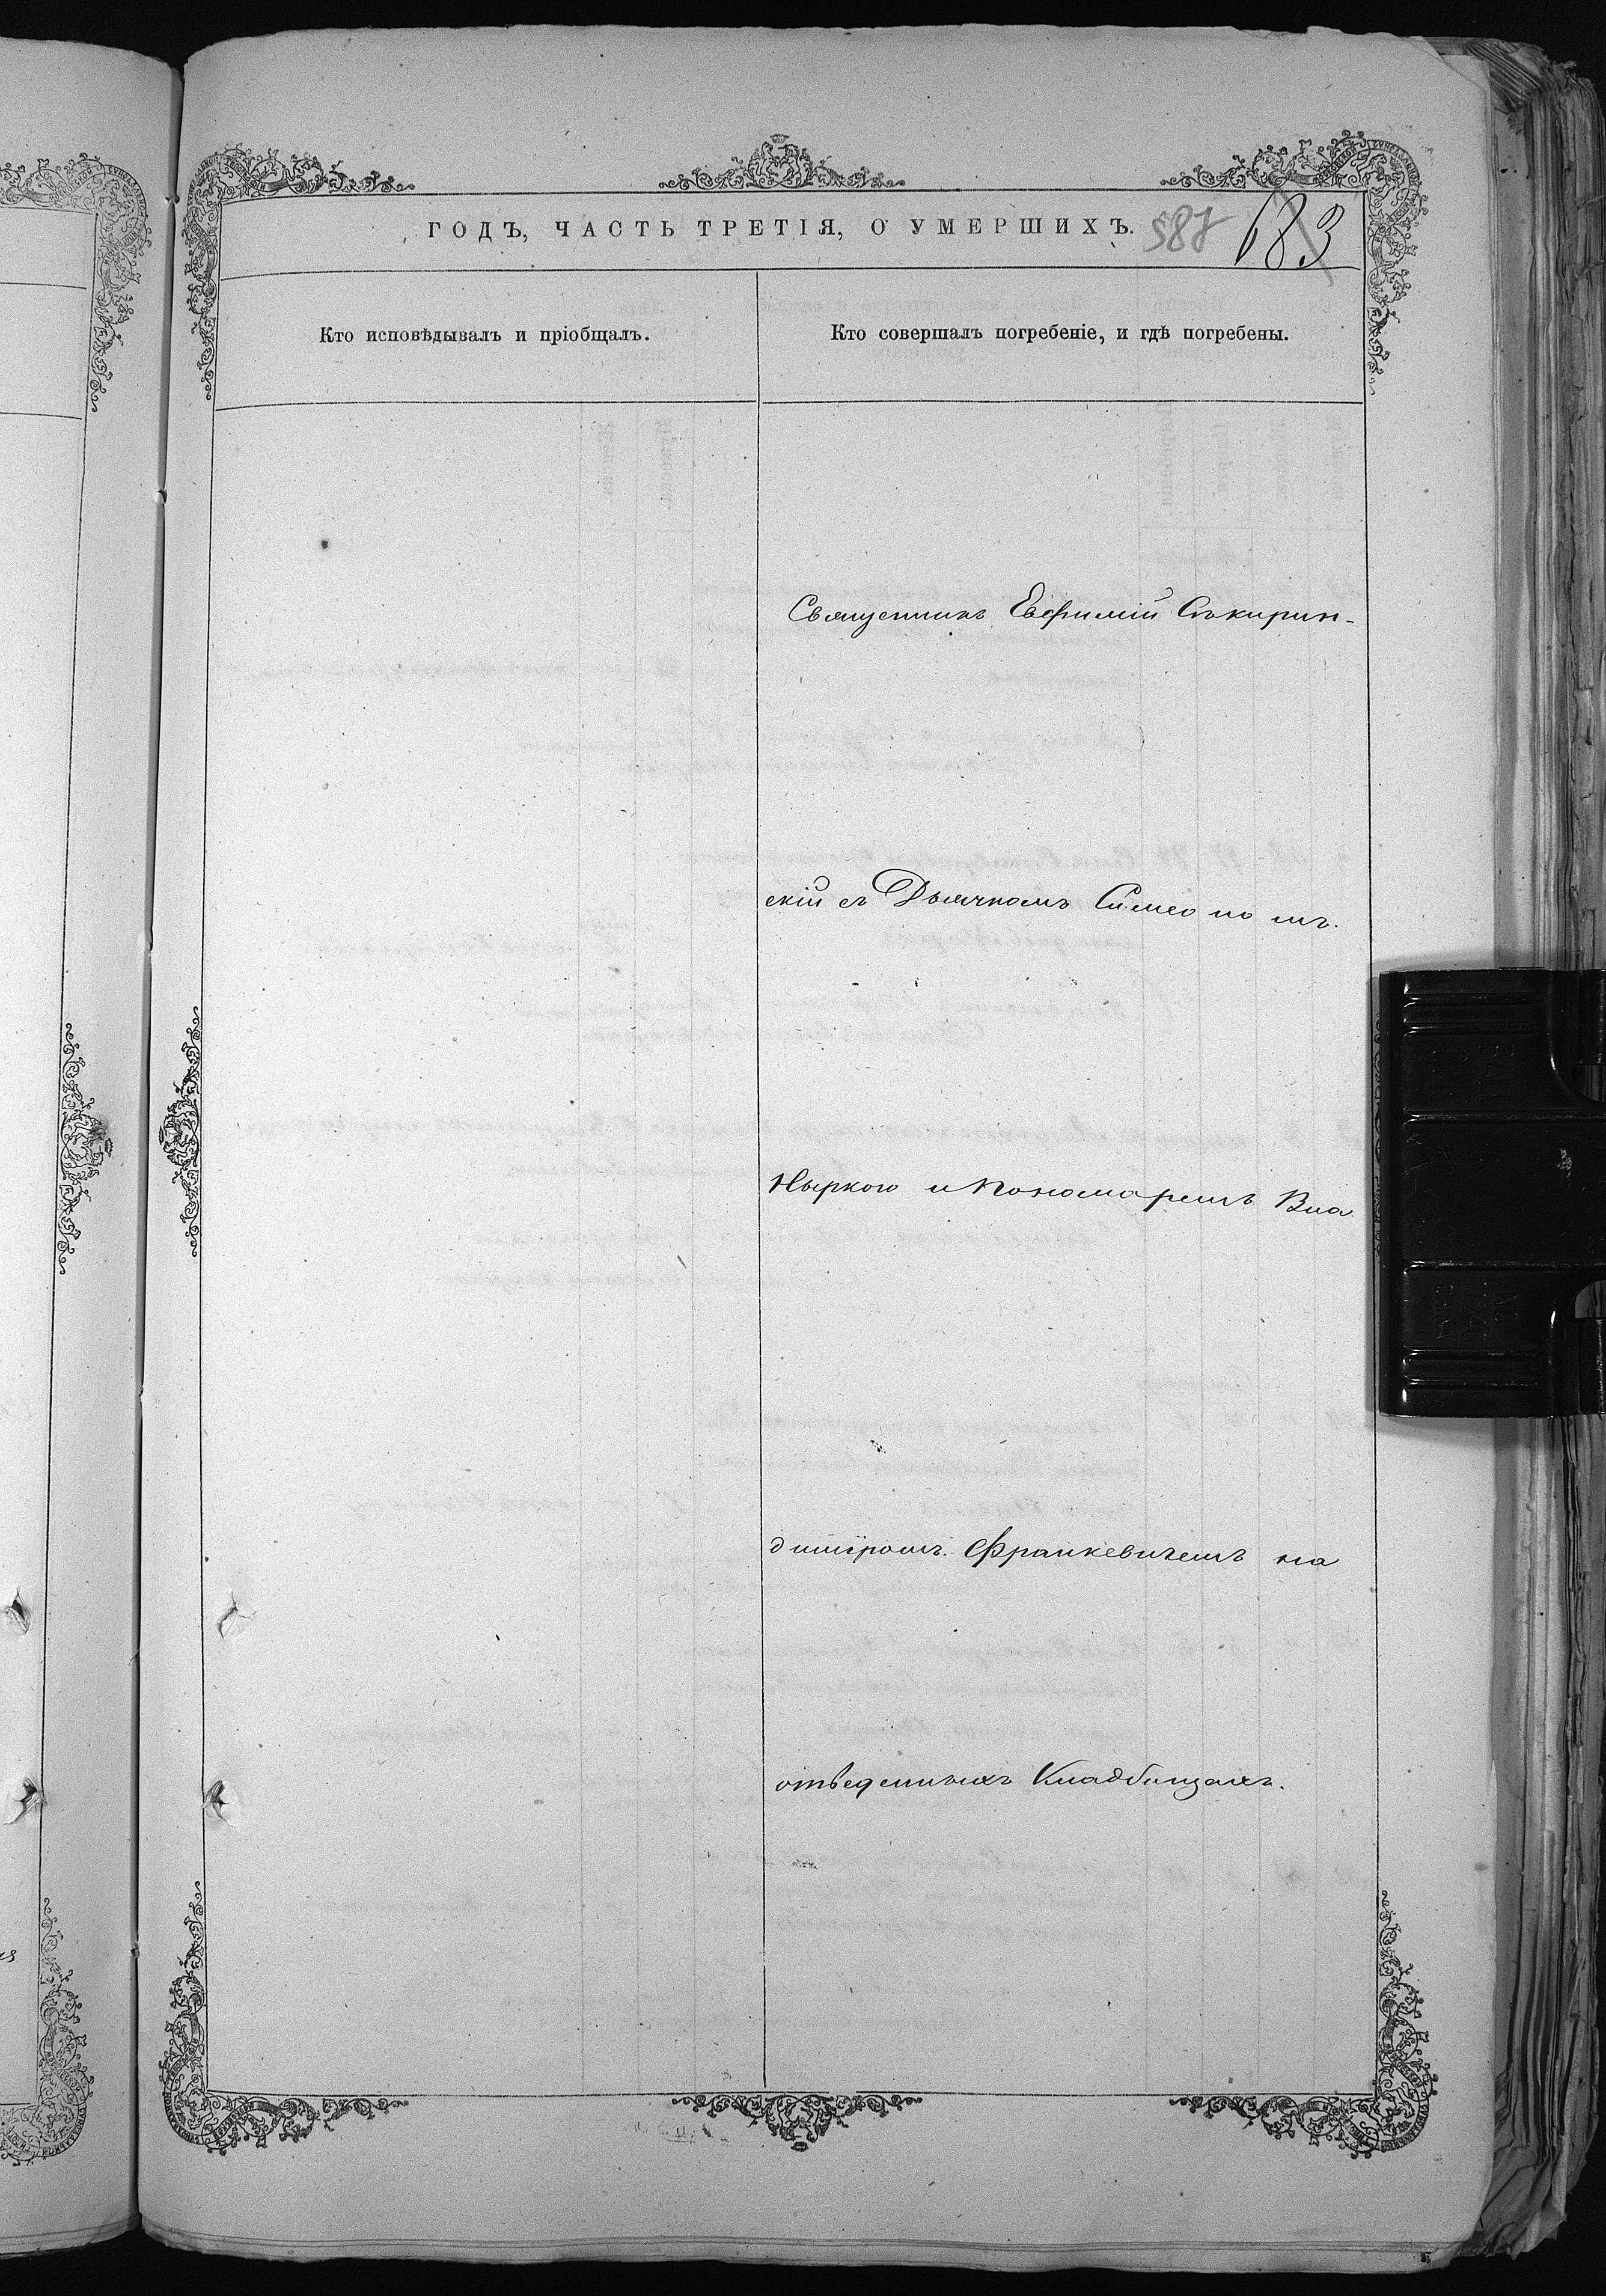 ГОДЪ, ЧАСТЬ ТРЕТІЯ, О УМЕРШИХЪ.
587 683
Кто исповѣдывалъ и пріобщалъ.
Кто совершалъ погребеніе, и гдѣ погребены.
Священникъ Евфимій Сѣкирин-
скій съ Дьячкомъ Симеономъ
Ныркою и Пономаремъ Вла
диміромъ Франкевичемъ на
отведенныхъ Кладбищахъ.